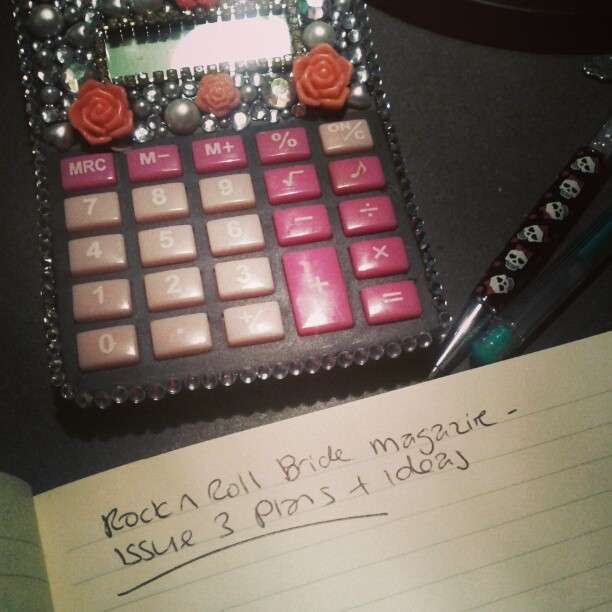 MRC M− M+ % ON/C
7 8 9 √ ♪
4 5 6 − ÷
1 2 3 + ×
0 . +/− =
Rock n Roll Bride magazine -
issue 3 plans + ideas